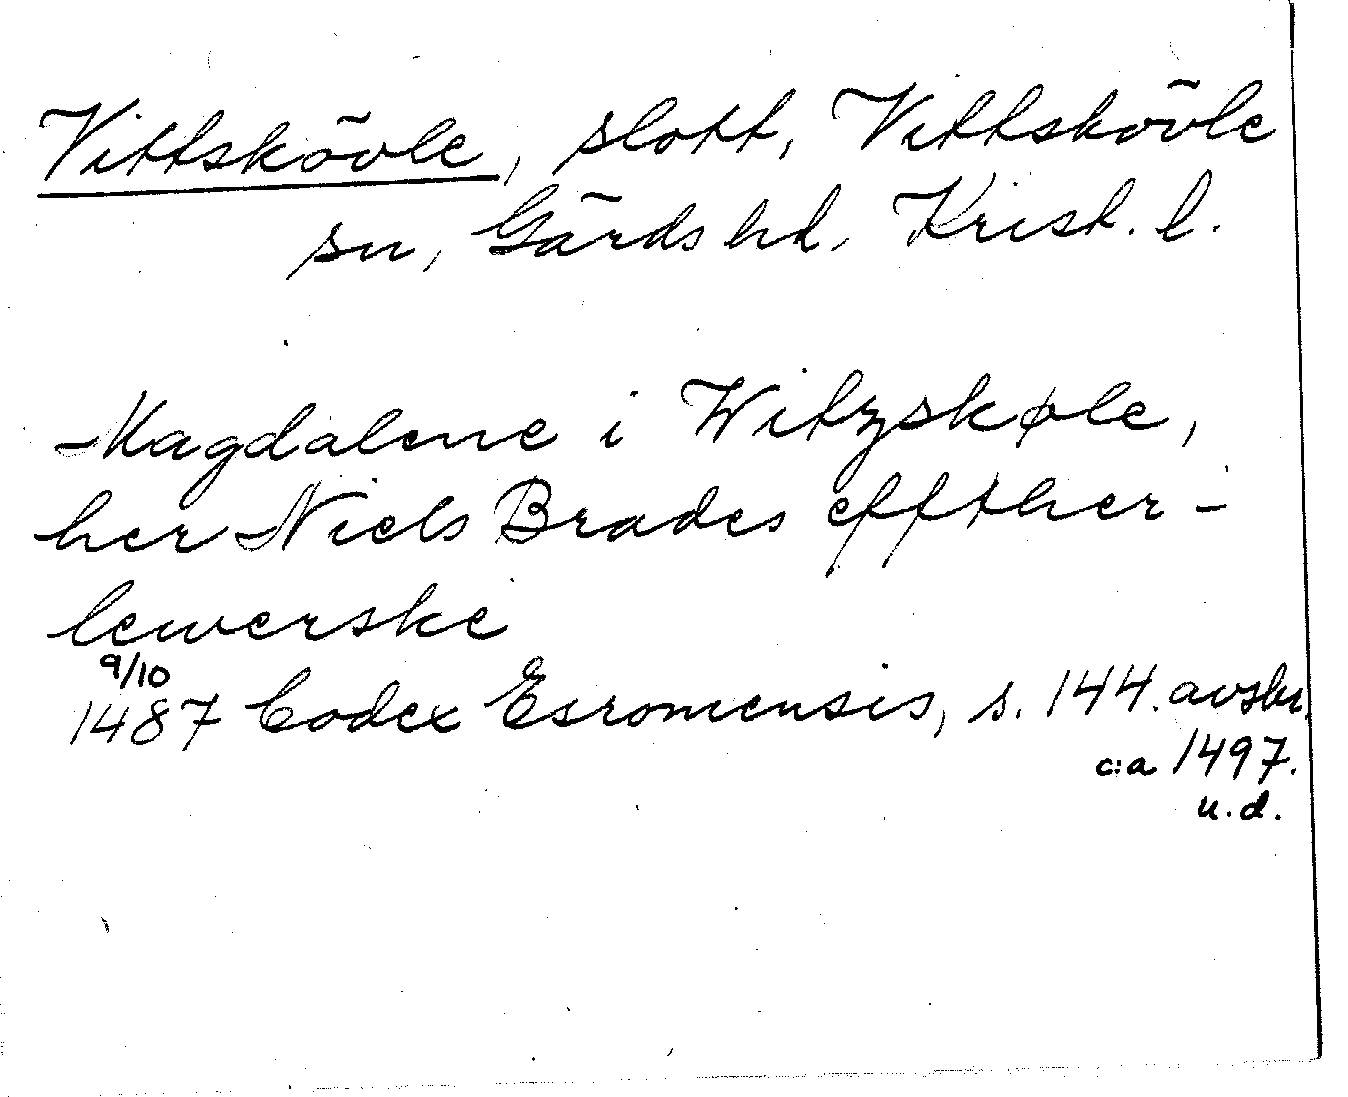 Vittskövle, slott, Vittskövle
sn, Gärds hd, Krist. l.
Magdalene i Witzskøle,
her Niels Brades effther-
lewerske
9/10
1487 Codex Esromensis, s. 144. avskr.
c:a 1497.
u.d.